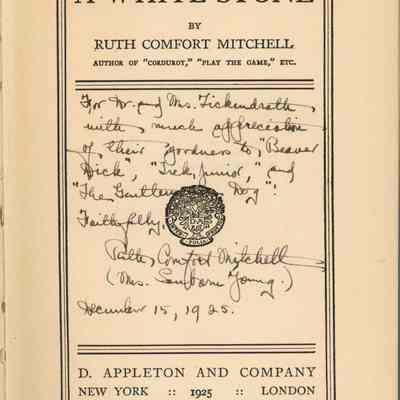 A WHITE STONE
BY
RUTH COMFORT MITCHELL
AUTHOR OF "CORDUROY," "PLAY THE GAME," ETC.
For Dr. and Mrs.
with much appreciation
of their goodness to, "Beaver
Dick", "Junior," and
"The Dog".
Faithfully,
Ruth Comfort Mitchell
(Mrs. Sanborn Young.)
December 15, 1925.
D. APPLETON AND COMPANY
NEW YORK :: 1925 :: LONDON